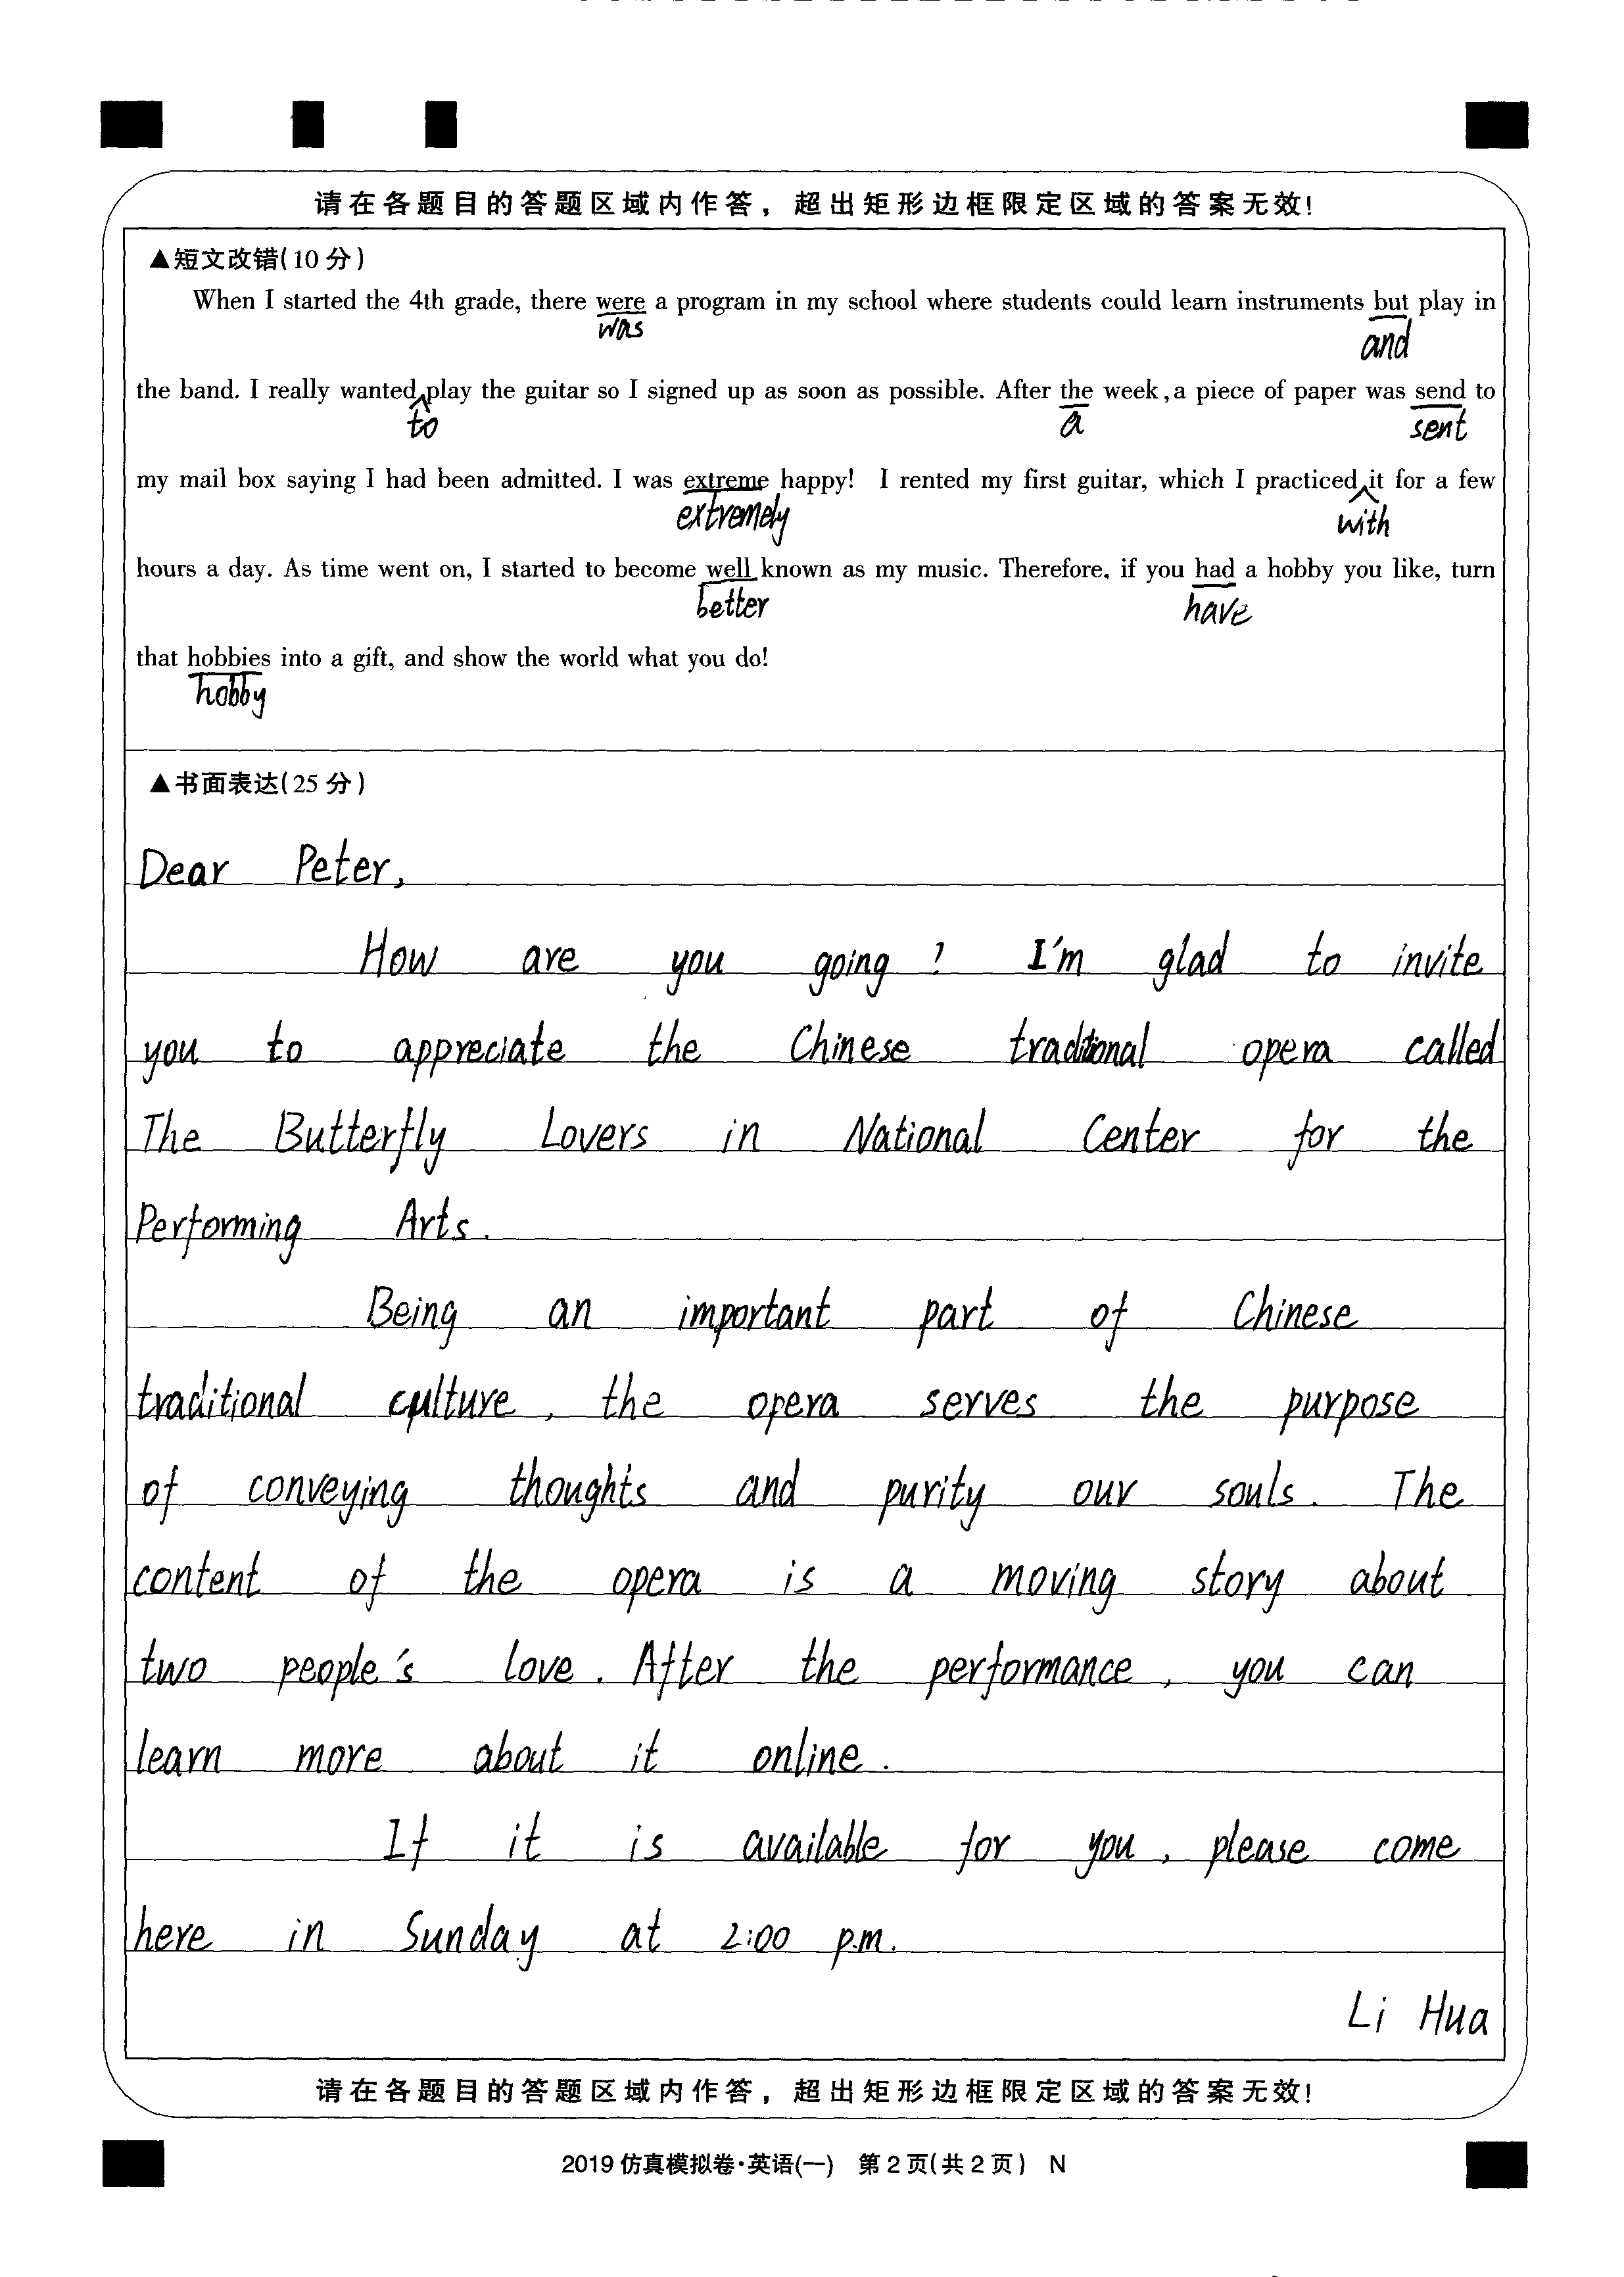 请在各题目的答题区域内作答，超出矩形边框限定区域的答案无效!
▲短文改错(10分)
When I started the 4th grade, there were a program in my school where students could learn instruments but play in
was
and
the band. I really wanted play the guitar so I signed up as soon as possible. After the week, a piece of paper was send to
to
a
sent
my mail box saying I had been admitted. I was extreme happy! I rented my first guitar, which I practiced it for a few
extremely
with
hours a day. As time went on, I started to become well known as my music. Therefore, if you had a hobby you like, turn
better
have
that hobbies into a gift, and show the world what you do!
hobby
▲书面表达(25分)
Dear Peter,
How are you going? I'm glad to invite
you to appreciate the Chinese traditional opera called
The Butterfly Lovers in National Center for the
Performing Arts.
Being an important part of Chinese
traditional culture, the opera serves the purpose
of conveying thoughts and purity our souls. The
content of the opera is a moving story about
two people's love. After the performance, you can
learn more about it online.
If it is available for you, please come
here in Sunday at 2:00 p.m.
Li Hua
请在各题目的答题区域内作答，超出矩形边框限定区域的答案无效!
2019仿真模拟卷·英语(一) 第2页(共2页) N